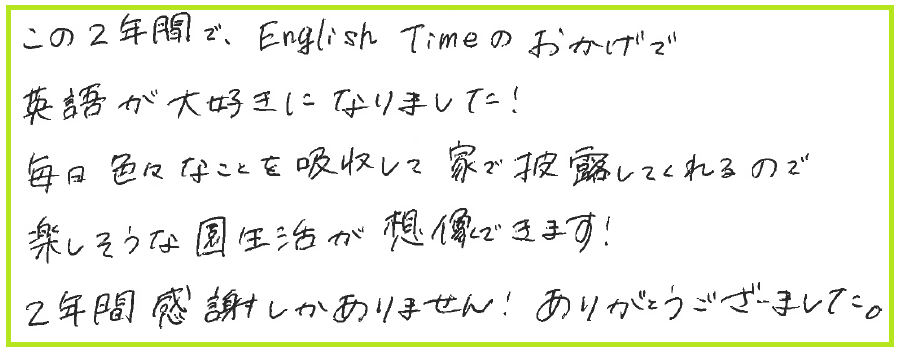 この2年間で、English Timeのおかげで
英語が大好きになりました!
毎日色々なことを吸収して家で披露してくれるので
楽しそうな園生活が想像できます!
2年間感謝しかありません!ありがとうございました。